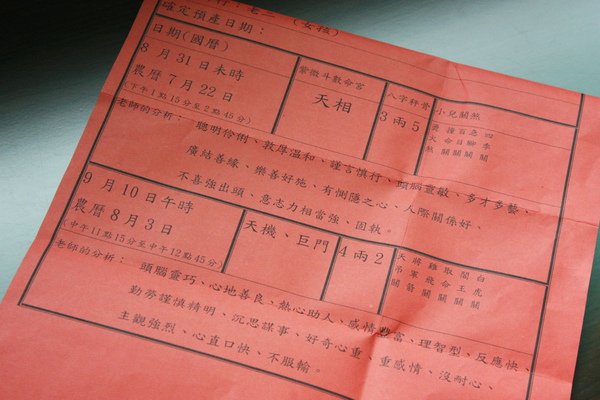 行：老二 （女孩）
確定預產日期：
日期(國曆) 紫微斗數命宮 八字秤骨 小兒關煞
8 月 31 日未時
農曆 7 月 22 日
(下午 1 點 15 分至 2 點 45 分)
天相
3 兩 5
撞命關 急腳關 四季關
老師的分析： 聰明伶俐、敦厚溫和、謹言慎行、頭腦靈敏、多才多藝、
廣結善緣、樂善好施、有惻隱之心、人際關係好、
不喜強出頭、意志力相當強、固執。
9 月 10 日午時
農曆 8 月 3 日
(中午 11 點 15 分至中午 12 點 45 分)
天機、巨門
4 兩 2
天吊關 將軍箭 雞飛關 取命關 閻王關 白虎關
老師的分析： 頭腦靈巧、心地善良、熱心助人、感情豐富、理智型、反應快、
勤勞謹慎精明、沉思謀事、好奇心重、重感情、沒耐心、
主觀強烈、心直口快、不服輸。